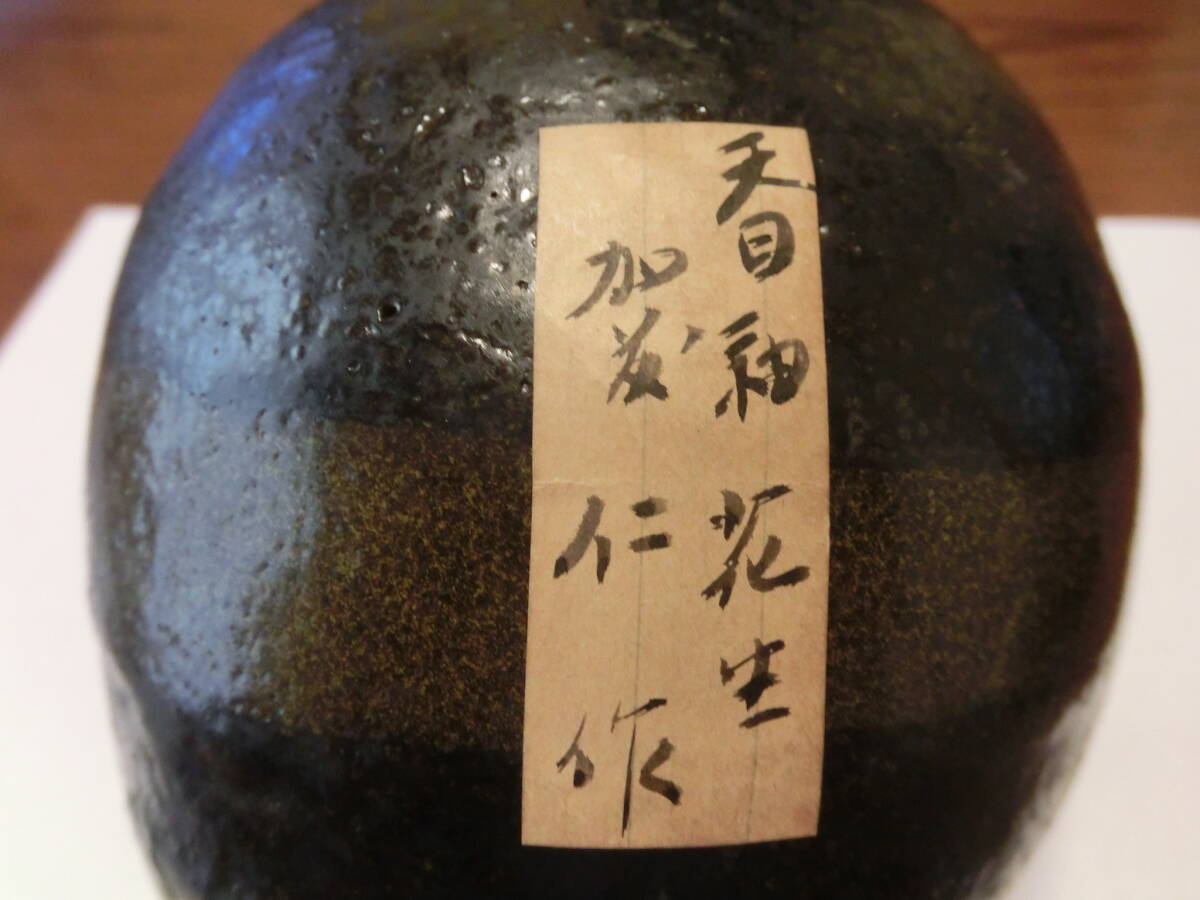 天目釉 花生
加茂 仁 作